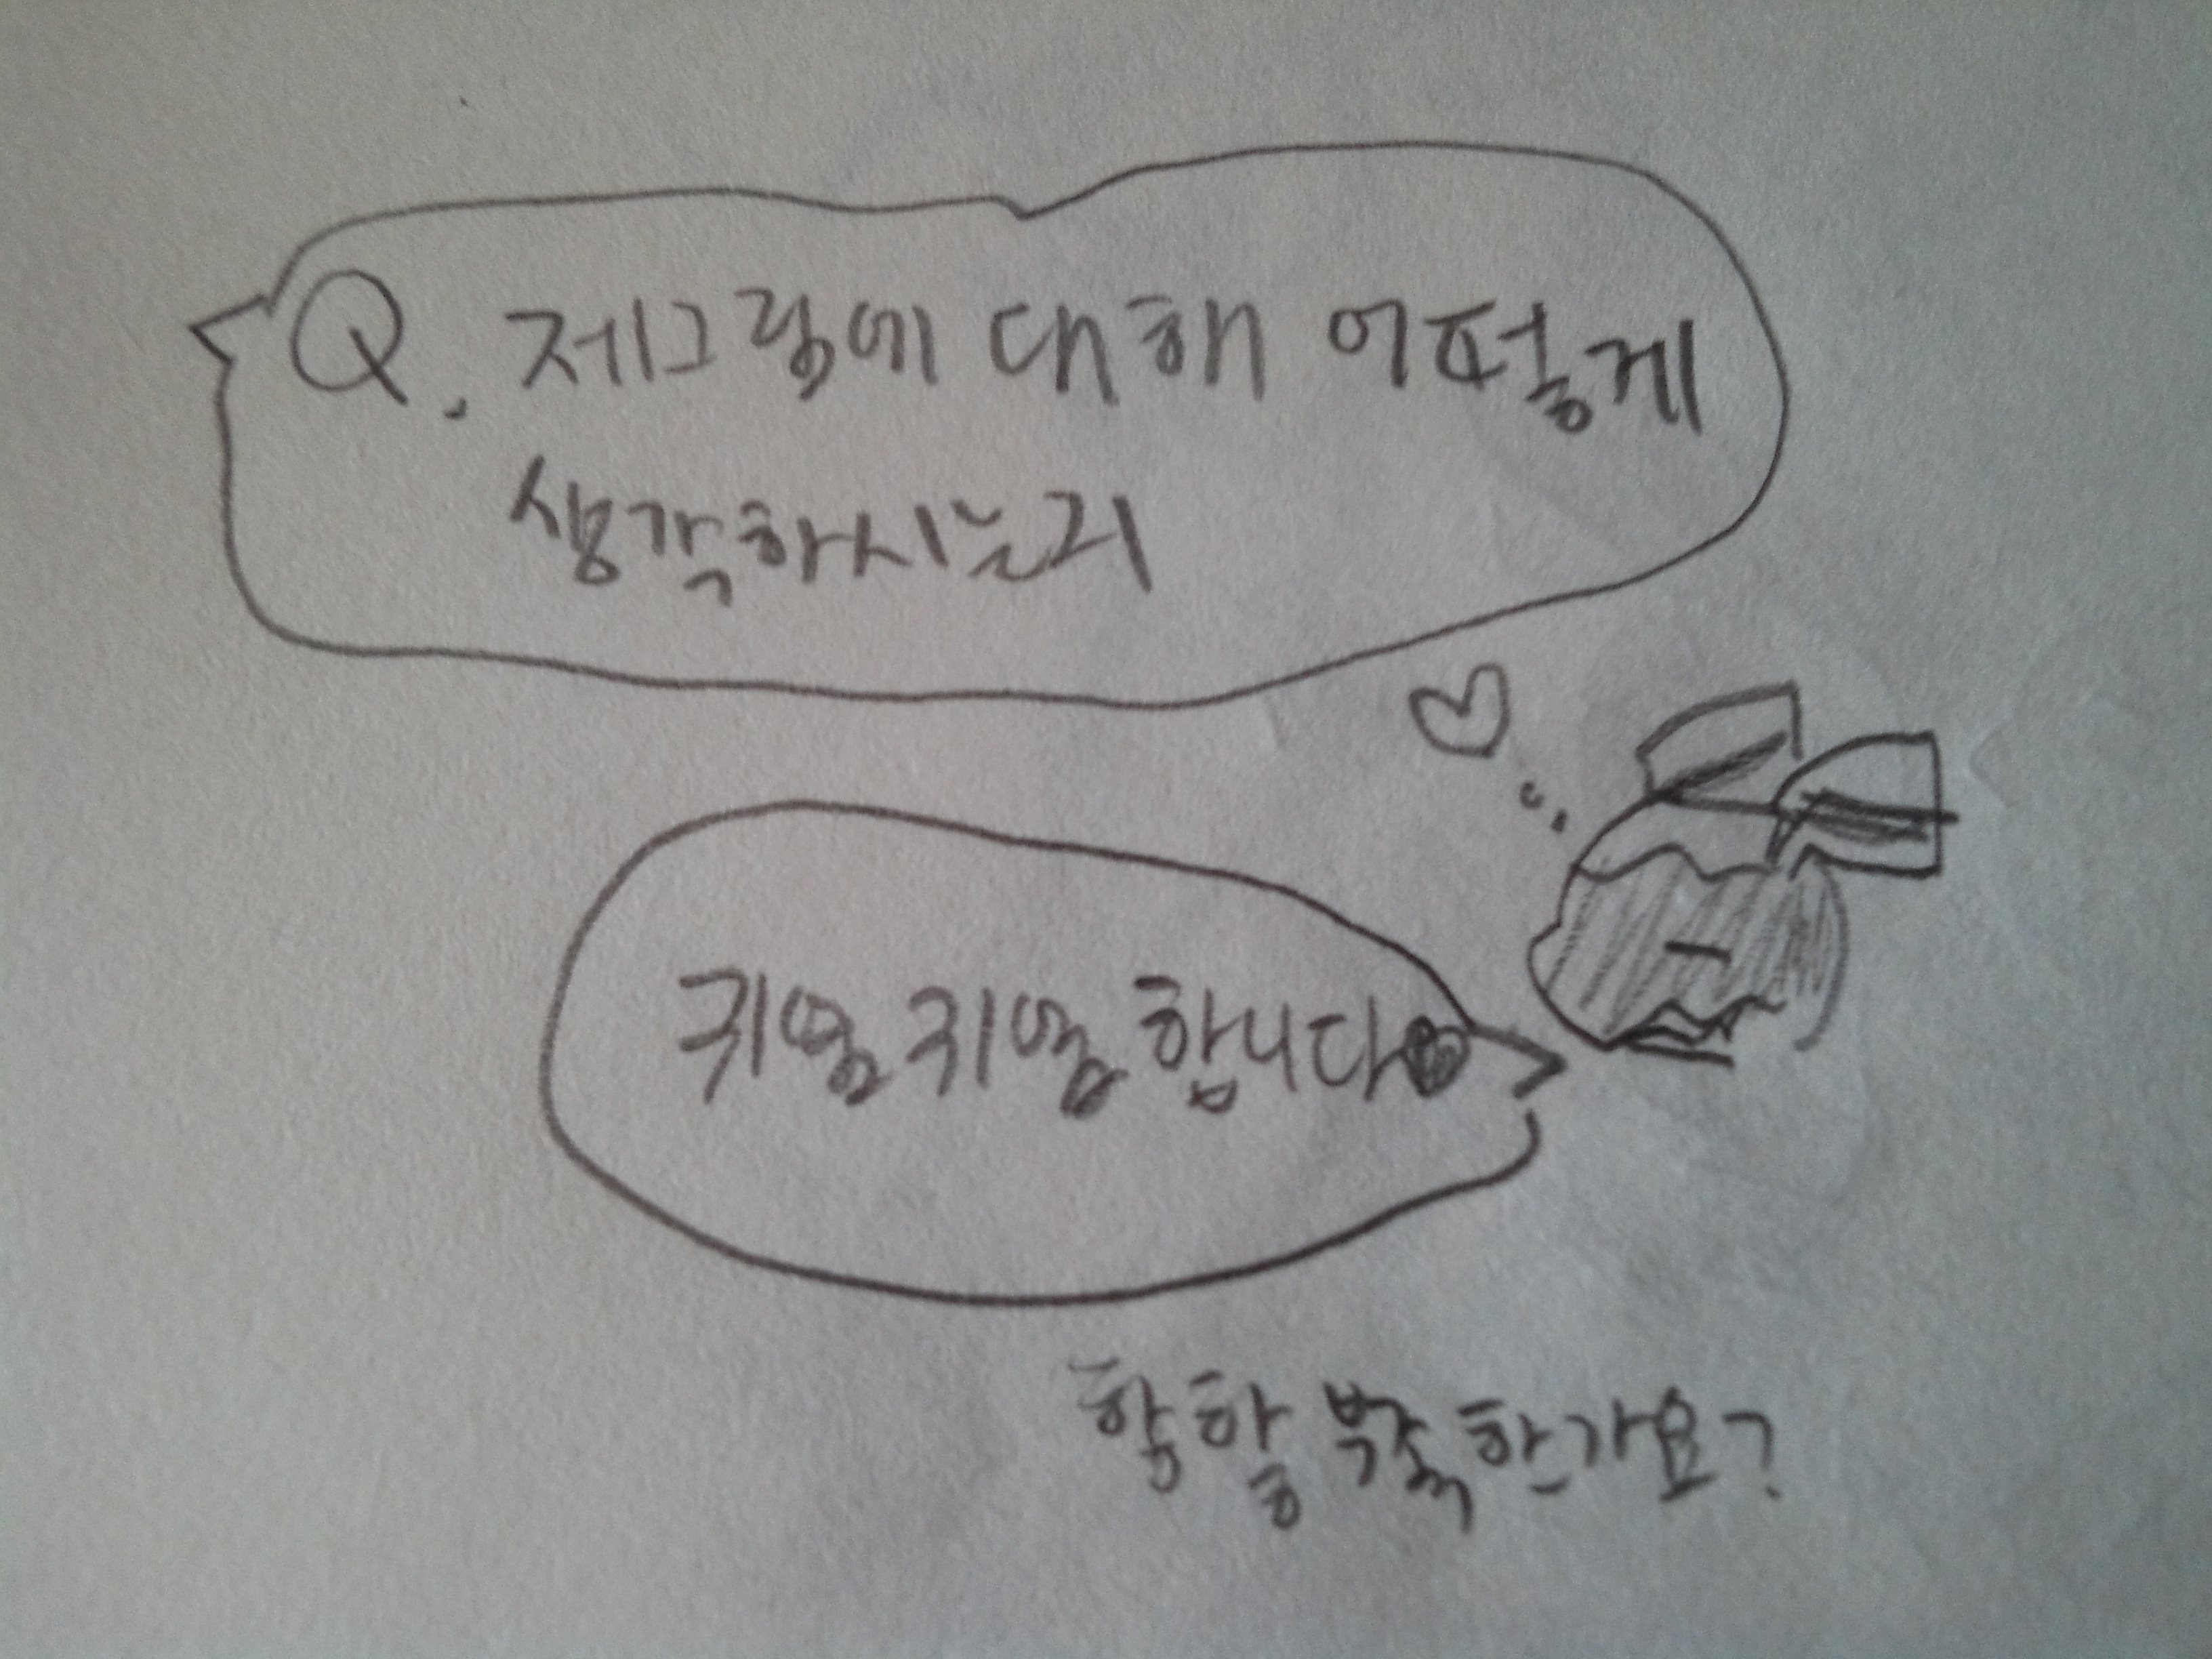 Q. 제그림에 대해 어떻게
생각하시는지
귀염귀염합니다
한가요?